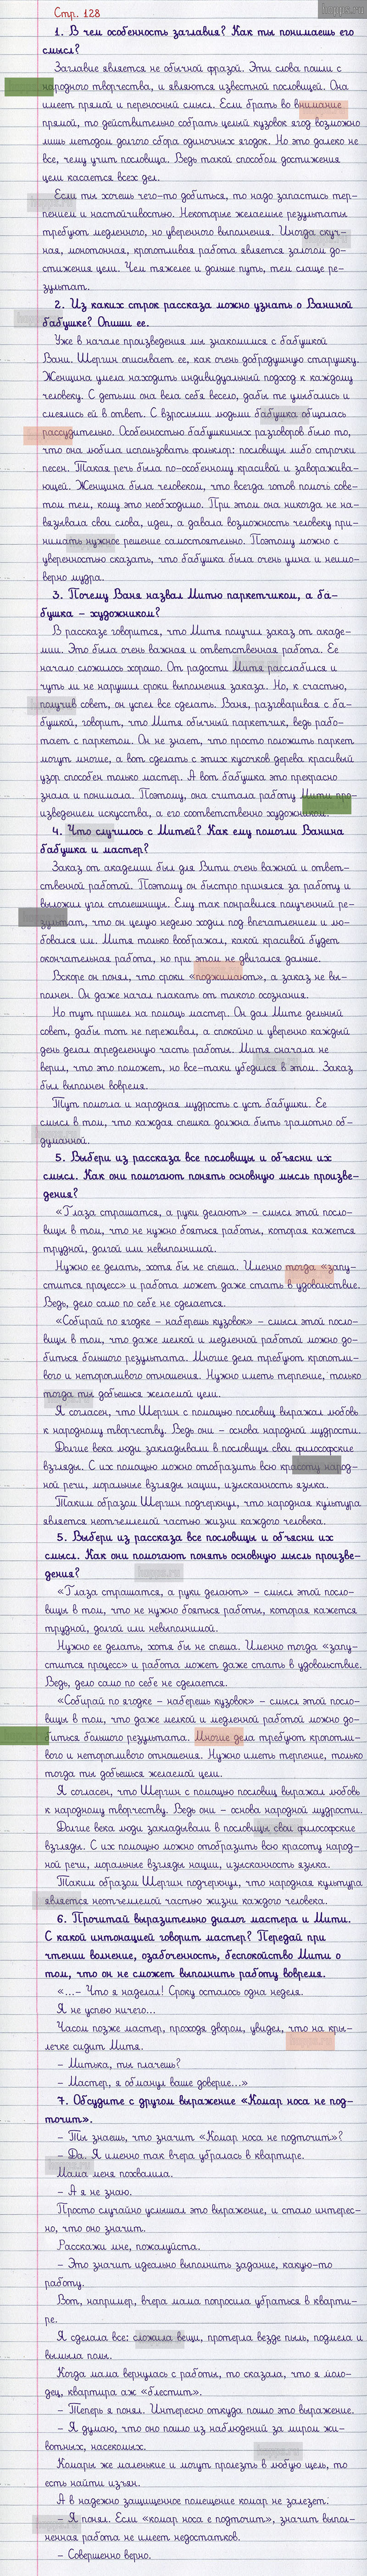 Стр. 128
1. В чем особенность заглавия? Как ты понимаешь его
смысл?
Заглавие является не обычной фразой. Эти слова пошли с
народного творчества, и являются известной пословицей. Она
имеет прямой и переносный смысл. Если брать во внимание
прямой, то действительно собрать целый кузовок ягод возможно
лишь методом долгого сбора одиночных ягодок. Но это далеко не
все, чему учит пословица. Ведь такой способом достижения
цели касается всех дел.
Если ты хочешь чего-то добиться, то надо запастись тер-
пением и настойчивостью. Некоторые желаемые результаты
требуют медленного, но уверенного выполнения. Иногда скуч-
ная, монотонная, кропотливая работа является залогом до-
стижения цели. Чем тяжелее и дольше путь, тем слаще ре-
зультат.
2. Из каких строк рассказа можно узнать о Ваниной
бабушке? Опиши ее.
Уже в начале произведения мы знакомимся с бабушкой
Вани. Шергин описывает ее, как очень добродушную старушку.
Женщина умела находить индивидуальный подход к каждому
человеку. С детьми она вела себя весело, дабы те улыбались и
смеялись ей в ответ. С взрослыми людьми бабушка общалась
рассудительно. Особенностью бабушкиных разговоров было то,
что она любила использовать фольклор: пословицы либо строчки
песен. Такая речь была по-особенному красивой и заворажива-
ющей. Женщина была человеком, что всегда готов помочь сове-
том тем, кому это необходимо. При этом она никогда не на-
вязывала свои слова, идеи, а давала возможность человеку при-
нимать нужное решение самостоятельно. Поэтому можно с
уверенностью сказать, что бабушка была очень умна и неимо-
верно мудра.
3. Почему Ваня назвал Митю паркетчиком, а ба-
бушка – художником?
В рассказе говорится, что Митя получил заказ от акаде-
мии. Это была очень важная и ответственная работа. Ее
начало сложилось хорошо. От радости Митя расслабился и
чуть и не нарушил сроки выполнения заказа. Но, к счастью,
получив совет, он успел все сделать. Ваня, разговаривая с ба-
бушкой, говорит, что Митя обычный паркетчик, ведь рабо-
тает с паркетом. Он не знает, что просто положить паркет
могут многие, а вот сделать с этих кусочков дерева красивый
узор способен только мастер. А вот бабушка это прекрасно
знала и понимала. Поэтому, она считала работу Мити про-
изведением искусства, а его соответственно художником.
4. Что случилось с Митей? Как ему помогли Ванина
бабушка и мастер?
Заказ от академии был для Вити очень важной и ответ-
ственной работой. Поэтому он быстро принялся за работу и
выложил узор столешницы. Ему так понравился полученный ре-
зультат, что он целую неделю ходил под впечатлением и лю-
бовался им. Митя только воображал, какой красивой будет
окончательная работа, но при этом не двигался дальше.
Вскоре он понял, что сроки «поджимают», а заказ не вы-
полнен. Он даже начал плакать от такого осознания.
Но тут пришел на помощь мастер. Он дал Мите дельный
совет, дабы тот не переживал, а спокойно и уверенно каждый
день делал определенную часть работы. Митя сначала не
верил, что это поможет, но все-таки убедился в этом. Заказ
был выполнен вовремя.
Тут помогла и народная мудрость с уст бабушки. Ее
смысл в том, что каждая спешка должна быть грамотно об-
думанной.
5. Выбери из рассказа все пословицы и объясни их
смысл. Как они помогают понять основную мысль произве-
дения?
«Глаза страшатся, а руки делают» – смысл этой посло-
вицы в том, что не нужно бояться работы, которая кажется
трудной, долгой или невыполнимой.
Нужно ее делать, хотя бы не спеша. Именно тогда «запу-
стится процесс» и работа может даже стать в удовольствие.
Ведь, дело само по себе не сделается.
«Собирай по ягодке – наберешь кузовок» – смысл этой посло-
вицы в том, что даже мелкой и медленной работой можно до-
биться большого результата. Многие дела требуют кропотли-
вого и неторопливого отношения. Нужно иметь терпение, только
тогда ты добьешься желаемой цели.
Я согласен, что Шергин с помощью пословиц выражал любовь
к народному творчеству. Ведь они – основа народной мудрости.
Долгие века люди закладывали в пословицы свои философские
взгляды. С их помощью можно отобразить всю красоту народ-
ной речи, моральные взгляды нации, изысканность языка.
Таким образом Шергин подчеркнул, что народная культура
является неотъемлемой частью жизни каждого человека.
5. Выбери из рассказа все пословицы и объясни их
смысл. Как они помогают понять основную мысль произве-
дения?
«Глаза страшатся, а руки делают» – смысл этой посло-
вицы в том, что не нужно бояться работы, которая кажется
трудной, долгой или невыполнимой.
Нужно ее делать, хотя бы не спеша. Именно тогда «запу-
стится процесс» и работа может даже стать в удовольствие.
Ведь, дело само по себе не сделается.
«Собирай по ягодке – наберешь кузовок» – смысл этой посло-
вицы в том, что даже мелкой и медленной работой можно до-
биться большого результата. Многие дела требуют кропотли-
вого и неторопливого отношения. Нужно иметь терпение, только
тогда ты добьешься желаемой цели.
Я согласен, что Шергин с помощью пословиц выражал любовь
к народному творчеству. Ведь они – основа народной мудрости.
Долгие века люди закладывали в пословицы свои философские
взгляды. С их помощью можно отобразить всю красоту народ-
ной речи, моральные взгляды нации, изысканность языка.
Таким образом Шергин подчеркнул, что народная культура
является неотъемлемой частью жизни каждого человека.
6. Прочитай выразительно диалог мастера и Мити.
С какой интонацией говорит мастер? Передай при
чтении волнение, озабоченность, беспокойство Мити о
том, что он не сможет выполнить работу вовремя.
«...– Что я наделал! Сроку осталось одна неделя.
Я не успею ничего...
Часом позже мастер, проходя двором, увидел, что на кры-
лечке сидит Митя.
– Митька, ты плачешь?
– Мастер, я обманул ваше доверие...»
7. Обсудите с другом выражение «Комар носа не под-
точит».
– Ты знаешь, что значит «Комар носа не подточит»?
– Да. Я именно так вчера убралась в квартире.
Мама меня похвалила.
– А я не знаю.
Просто случайно услышал это выражение, и стало интерес-
но, что оно значит.
Расскажи мне, пожалуйста.
– Это значит идеально выполнить задание, какую-то
работу.
Вот, например, вчера мама попросила убраться в кварти-
ре.
Я сделала все: сложила вещи, протерла везде пыль, подмела и
вымыла полы.
Когда мама вернулась с работы, то сказала, что я моло-
дец, квартира аж «блестит».
– Теперь я понял. Интересно откуда пошло это выражение.
– Я думаю, что оно пошло из наблюдений за миром жи-
вотных, насекомых.
Комары же маленькие и могут пролезть в любую щель, то
есть найти изъян.
А в надежно защищенное помещение комар не залезет.
– Я понял. Если «комар носа е подточит», значит выпол-
ненная работа не имеет недостатков.
– Совершенно верно.